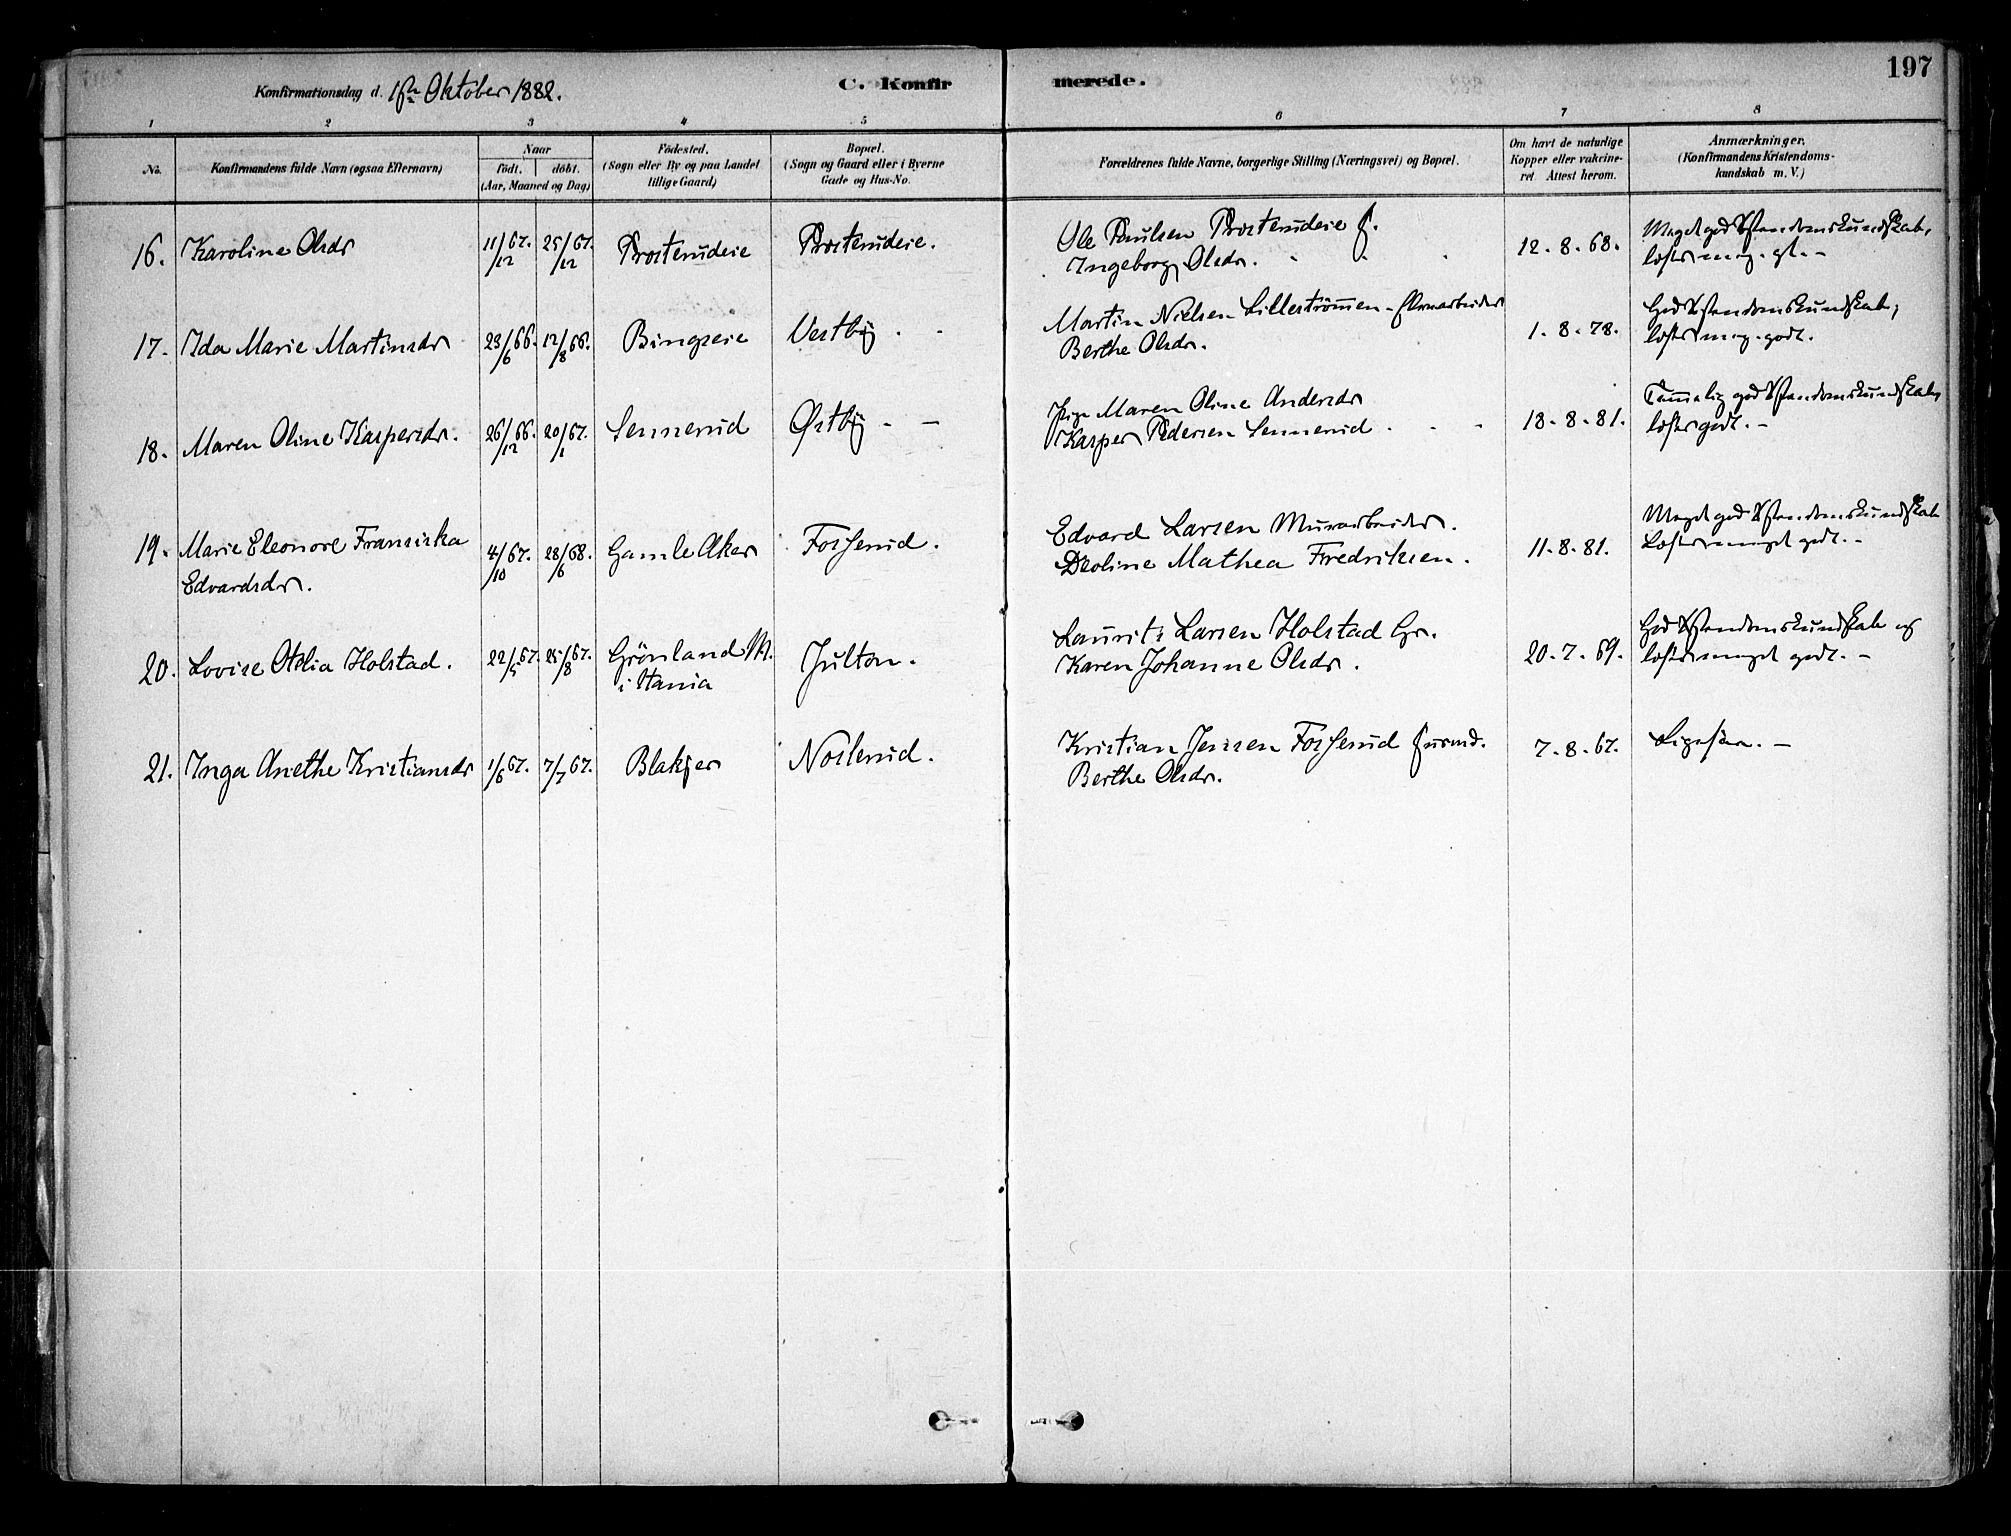 197
Konfirmationsdag d. 1ste Oktober 1882.
C. Konfirmerede.
1 2 3 4 5 6 7 8
No.
Konfirmandens fulde Navn (ogsaa Efternavn)
Naar
födt. döbt.
(Aar, Maaned og Dag)
Födested.
(Sogn eller By og paa Landet
tillige Gaard)
Bopæl.
(Sogn og Gaard eller i Byerne
Gade og Hus-No.
Forældrenes fulde Navne, borgerlige Stilling (Næringsvei) og Bopæl.
Om havt de naturlige
Kopper eller vakcine-
ret. Attest herom.
Anmærkninger.
(Konfirmandens Kristendoms-
kundskab m. V.)
16. Karoline Olsdr 11/12 67. 25/12 67. Prostenudeie Prostenudeie. Ole Paulsen Prostenudeie f. 12-8-68. Meget god Xstendomskundskab,
Ingeborg Olsdr. læser meg. gt. -
17. Ida Marie Martinsdr 23/6 66. 12/8 66. Bingseie Vestby Martin Nielsen Lilleströmmen
Berthe Olsdr. 1-8-78. God Xstendomskundskab,
læser meg. godt.
18. Maren Oline Kaspersdr. 26/12 66. 20/1 67. Sennerud Østby - - Pige Maren Oline Andersdr
Kasper Pedersen Sennerud 18-8-81. Temmelig god Xstendomskundskab,
læser godt. -
19. Marie Eleonore Fransiska
Edvardsdr. 4/10 67. 28/6 68. Gamle Aker Fosserud. Edvard Larsen Murarbeider.
Deoline Mathea Fredriksen. 11-8-81. Meget god Xstendomskundskab
Læser meget godt. -
20. Lovise Otelia Holstad. 22/5 67. 25/8 67. Grönland M.
i Stania Julton. Laurits Larsen Holstad Gr.
Karen Johanne Olsdr. 20-7-69. God Xstendomskundskab og
læser meget godt. -
21. Inga Anethe Kristiansdr 1/6 67. 7/7 67. Blakjer Noslerud. Kristian Jensen Fosserud
Berthe Olsdr. 7-8-67. Ligesaa. -